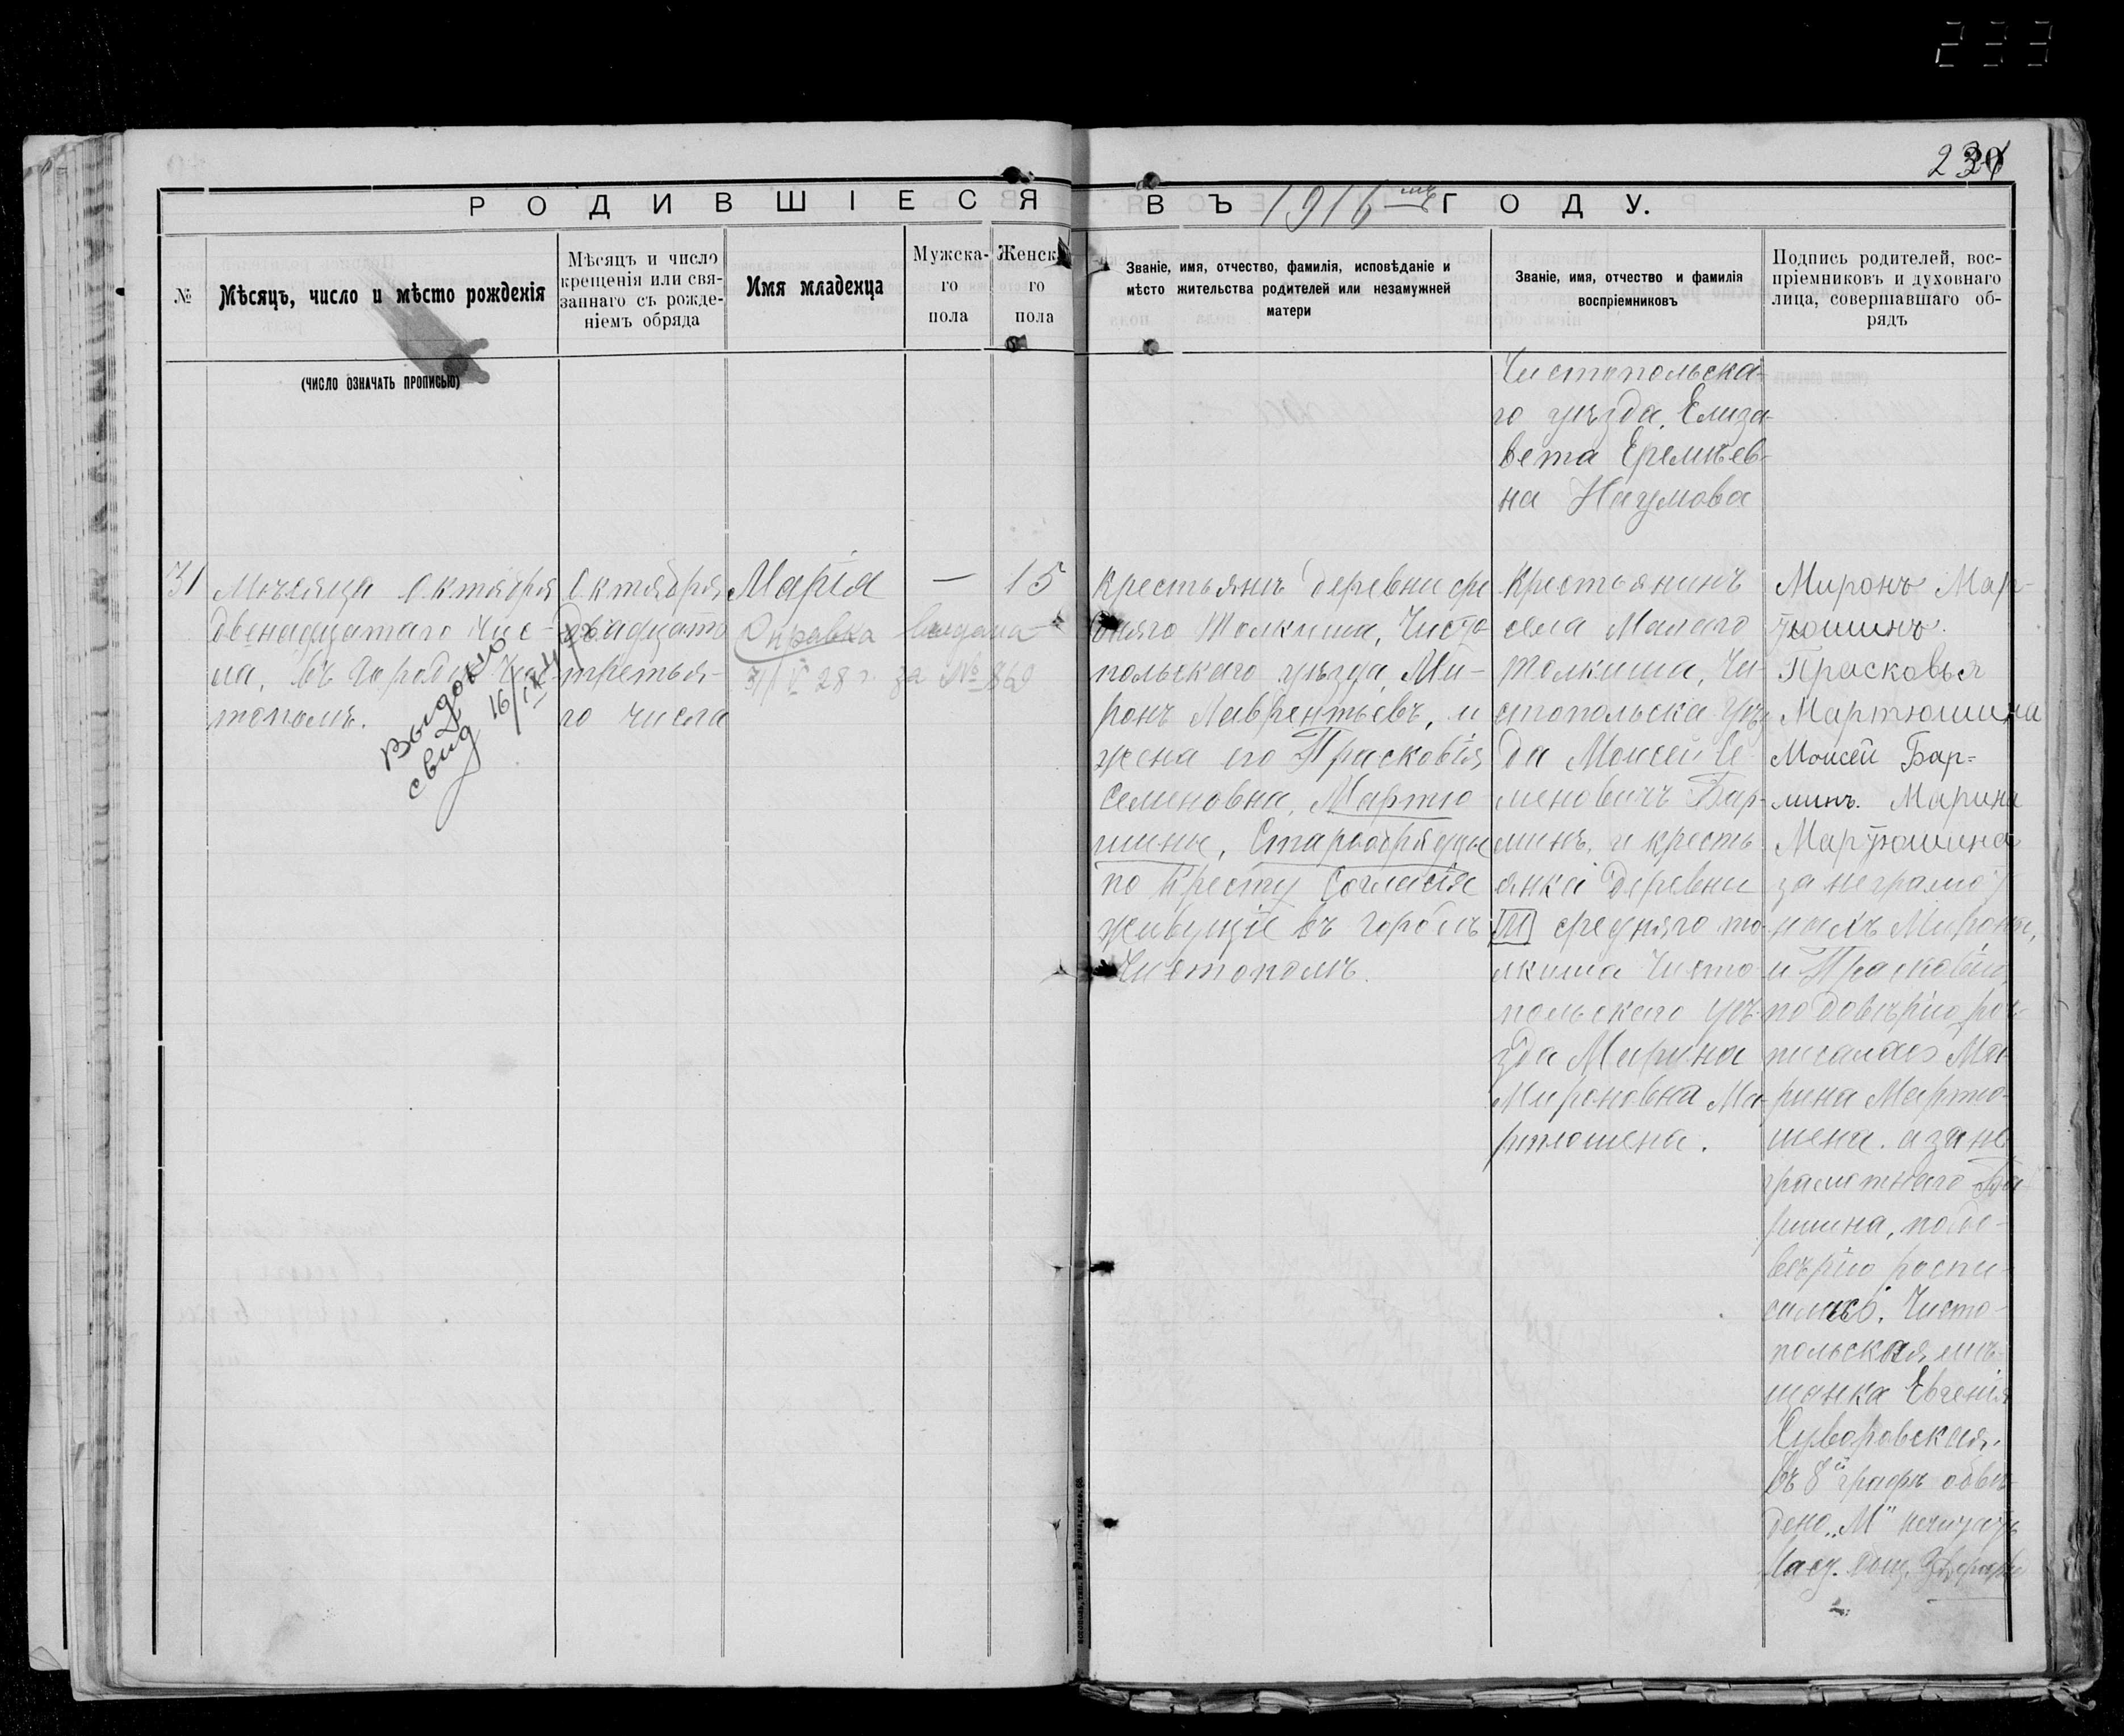 233
РОДИВШІЕСЯ ВЪ 1916 мъ ГОДУ.
№
Мѣсяцъ, число и мѣсто рожденія
(число означать прописью)
Мѣсяцъ и число
крещенія или свя-
заннаго съ рожде-
ніемъ обряда
Имя младенца
Мужска-
го
пола
Женска-
го
пола
Званіе, имя, отчество, фамилія, исповѣданіе и
мѣсто жительства родителей или незамужней
матери
Званіе, имя, отчество и фамилія
воспріемниковъ
Подпись родителей, вос-
пріемниковъ и духовнаго
лица, совершавшаго об-
рядъ
Чистопольска-
го уѣзда, Елиза-
вета Еремѣев-
на Наумова
31
Мѣсяца Октября
двенадцатаго чис-
ла, въ городѣ Чис-
тополѣ.
Выдано
свид 16/IX
Октября
двадцать
третья-
го числа
Марія
Справка выдана
31/V 28 г. за №
—
15
Крестьянъ деревни сре
дняго Толкиша, Чисто-
польскаго уѣзда, Ми-
ронъ Лаврентьевъ, и
жена его Прасковія
Семеновна, Мартю
шины, Старообрядцы
по Кресту Согласія
живущіе въ городѣ
Чистополѣ.
Крестьянинъ
села Малаго
Толкиша, Чи-
стопольска уѣз
да Моисей Се
меновичъ Бар-
минъ, и кресть
янка деревни
[М] средняго то-
лкиша Чисто
польскаго уѣ-
зда Марина
Мироновна Ма-
ртюшена.
Миронъ Мар-
тюшинъ.
Прасковья
Мартюшина
Моисей Бар=
минъ. Марина
Мартюшина
за неграмот
ныхъ Мирона,
и Прасковію
по довѣрію рос-
писалась Ма-
рина Мартю-
шена. а за не
грамотнаго Ба
рмина, по до-
вѣрію роспи-
салась. Чисто-
польская мѣ-
щанка Евгенія
Суворовская.
Въ 8й графѣ обве-
дено "М" нечитать